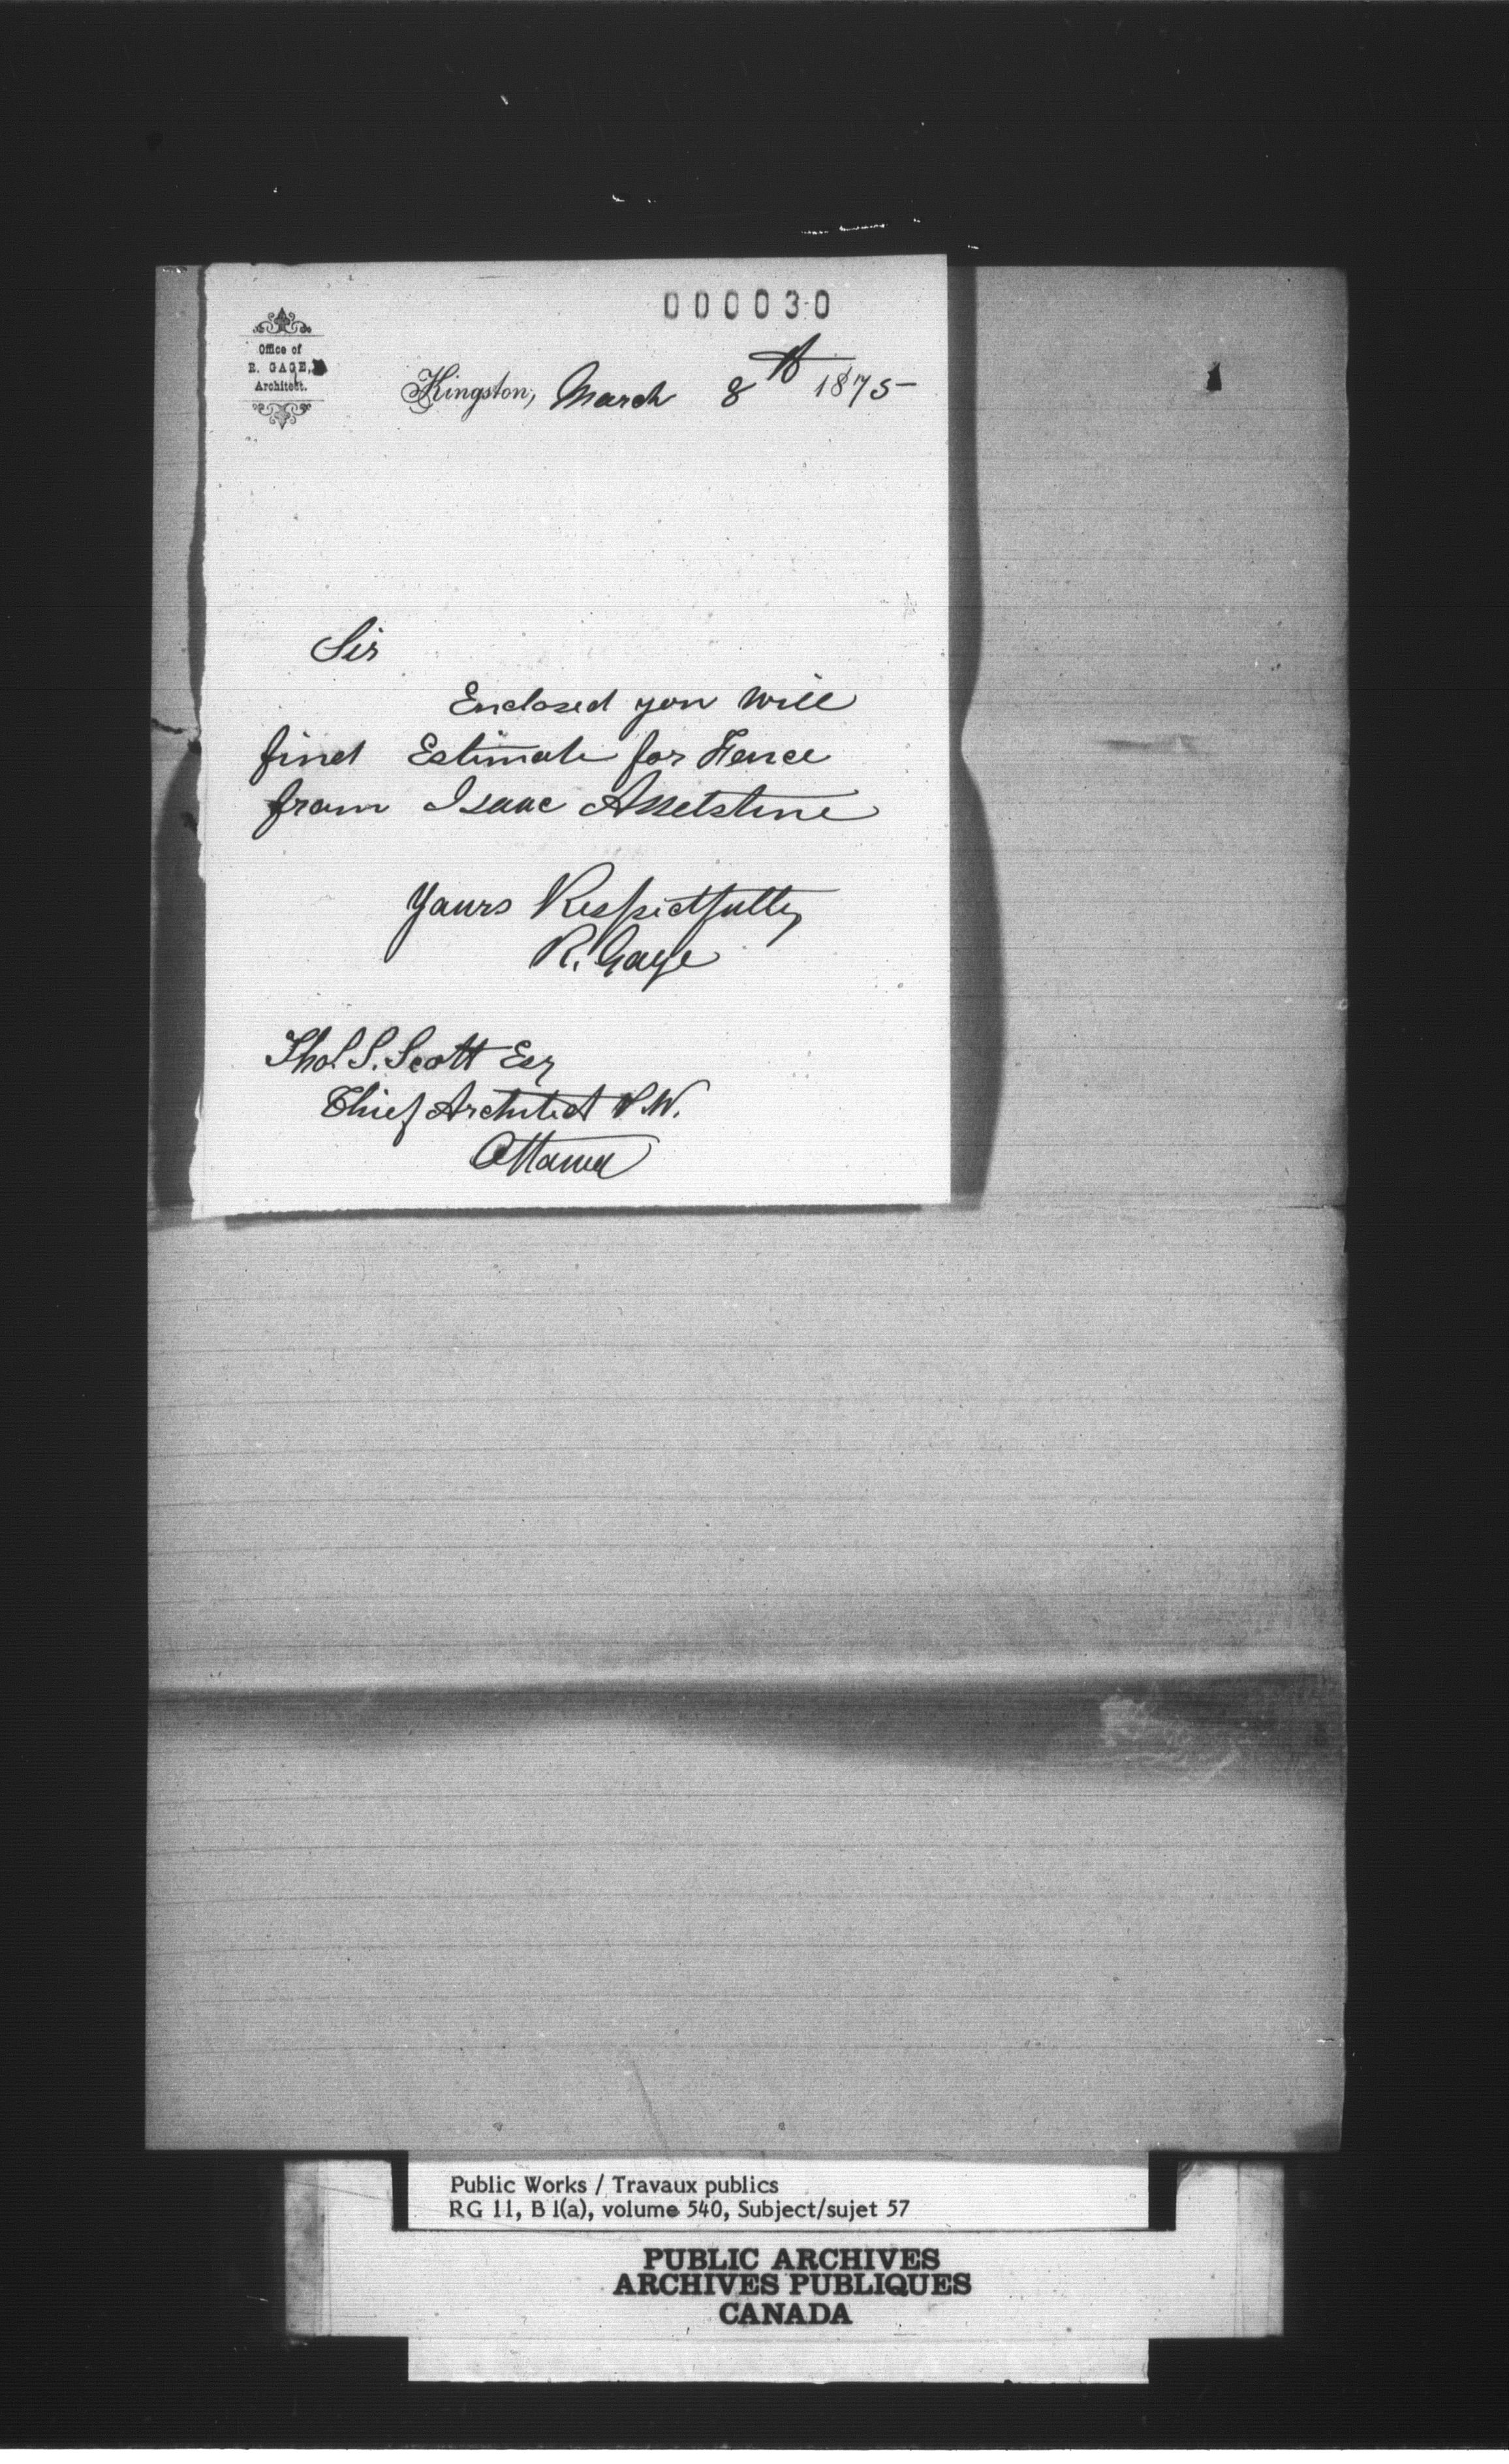 000030
Office of
R. GAGE,
Architect.
Kingston, March 8th 1875
Sir
Enclosed you will
find Estimate for Fence
from Isaac Asselstine
Yours Respectfully
R. Gage
Thos. S. Scott Esq
Chief Architect P.W.
Ottawa
Public Works / Travaux publics
RG 11, B 1(a), volume 540, Subject/sujet 57
PUBLIC ARCHIVES
ARCHIVES PUBLIQUES
CANADA